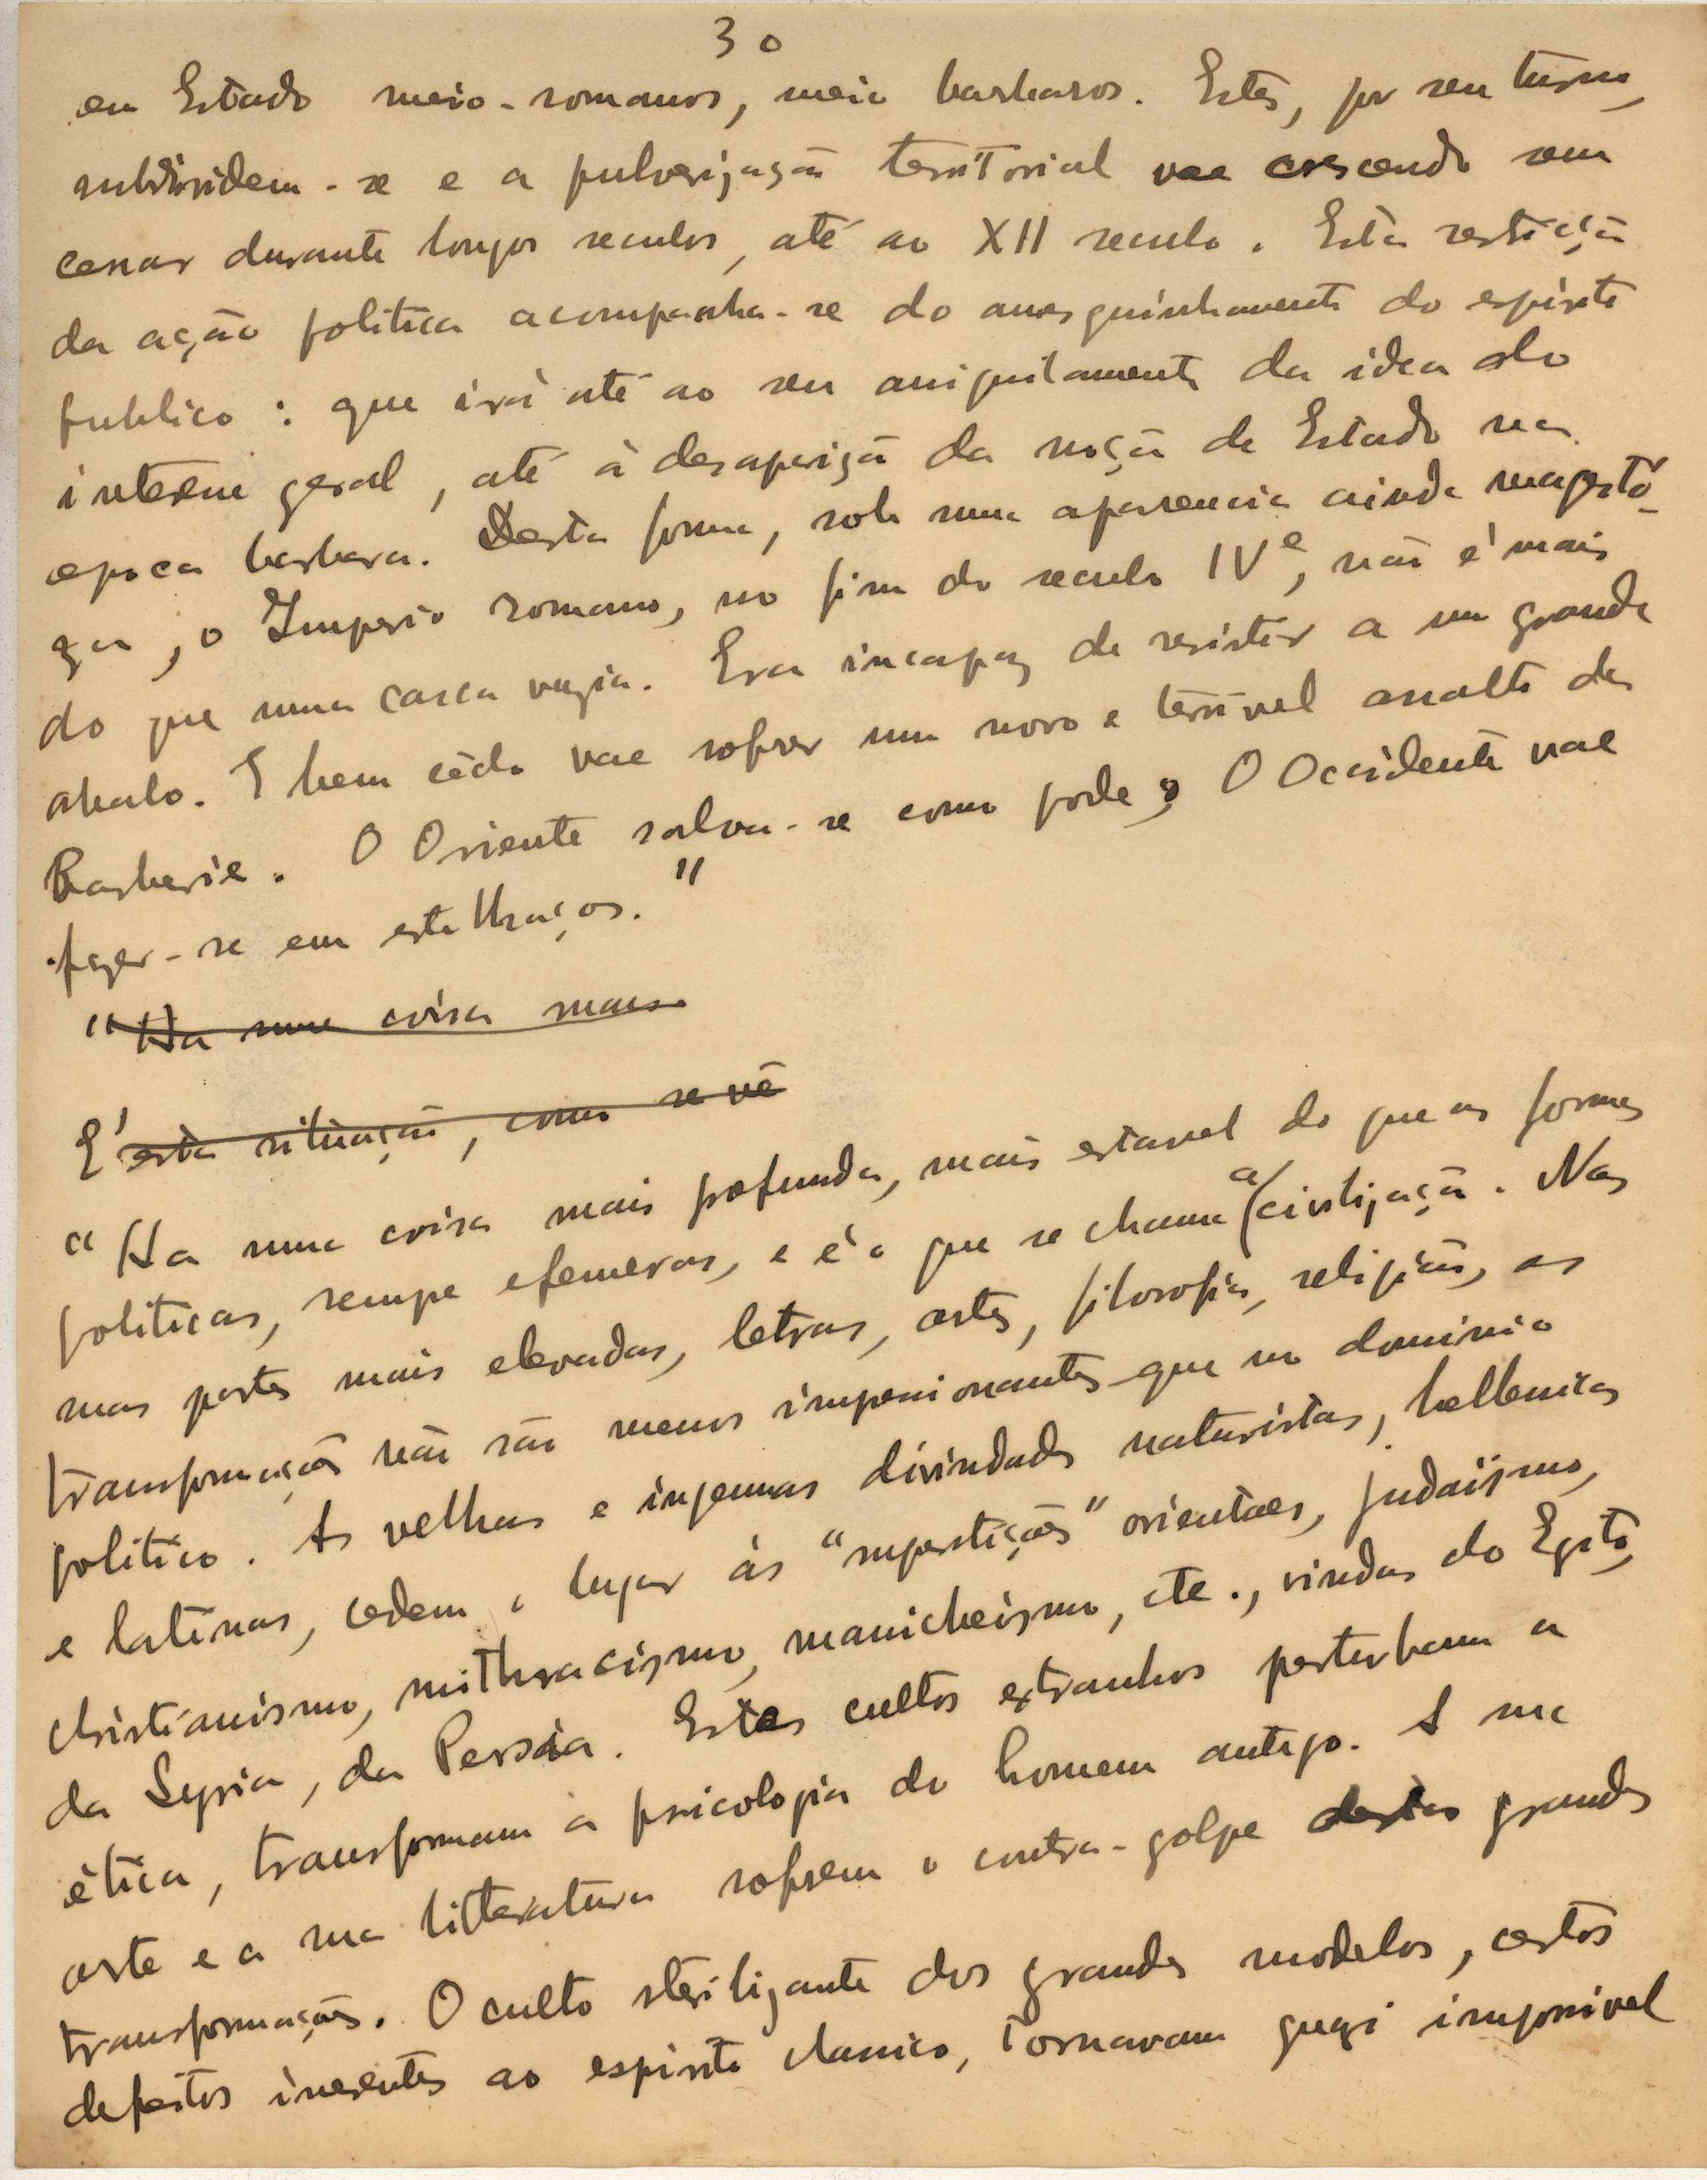 30
em Estado meio-romanos, meio barbaros. Estes, por seu turno,
subdividem-se e a pulverização territorial vae crescendo sem
cessar durante longos seculos, até ao XII seculo. Esta restrição
da ação politica acompanha-se do amesquinhamento do espirito
publico: que irá até ao seu aniquilamento da idea do
interesse geral, até à desaparição da noção de Estado na
epoca barbara. Desta forma, sob uma aparencia ainda magestó-
za, o Imperio romano, no fim do seculo IVº, não é mais
do que uma casca vazia. Era incapaz de resistir a um grande
abalo. E bem cêdo vae sofrer um novo e terrivel assalto da
Barberie. O Oriente salva-se como pode, O Occidente vae
fazer-se em estilhaços."
"Ha uma coisa mais
E' esta situação, como se vê
"Ha uma coisa mais profunda, mais estavel do que as formas
politicas, sempe efemeras, e é o que se chama a civilização. Nas
suas partes mais elevadas, letras, artes, filosofia, religião, as
transformações não são menos impressionantes que no dominio
politico. As velhas e ingenuas divindades naturistas, hellenicas
e latinas, cedem o lugar ás "superstições" orientaes, judaïsmo,
christianismo, mithracismo, manicheismo, etc., vindas do Egito,
da Syria, da Persia. Estes cultos extranhos perturbam a
ética, transformam a psicologia do homem antigo. A sua
arte e a sua litteratura sofrem o contra-golpe destas grandes
transformações. O culto sterilizante dos grandes modelos, certos
defeitos inerentes ao espirito classico, tornavam quazi impossivel